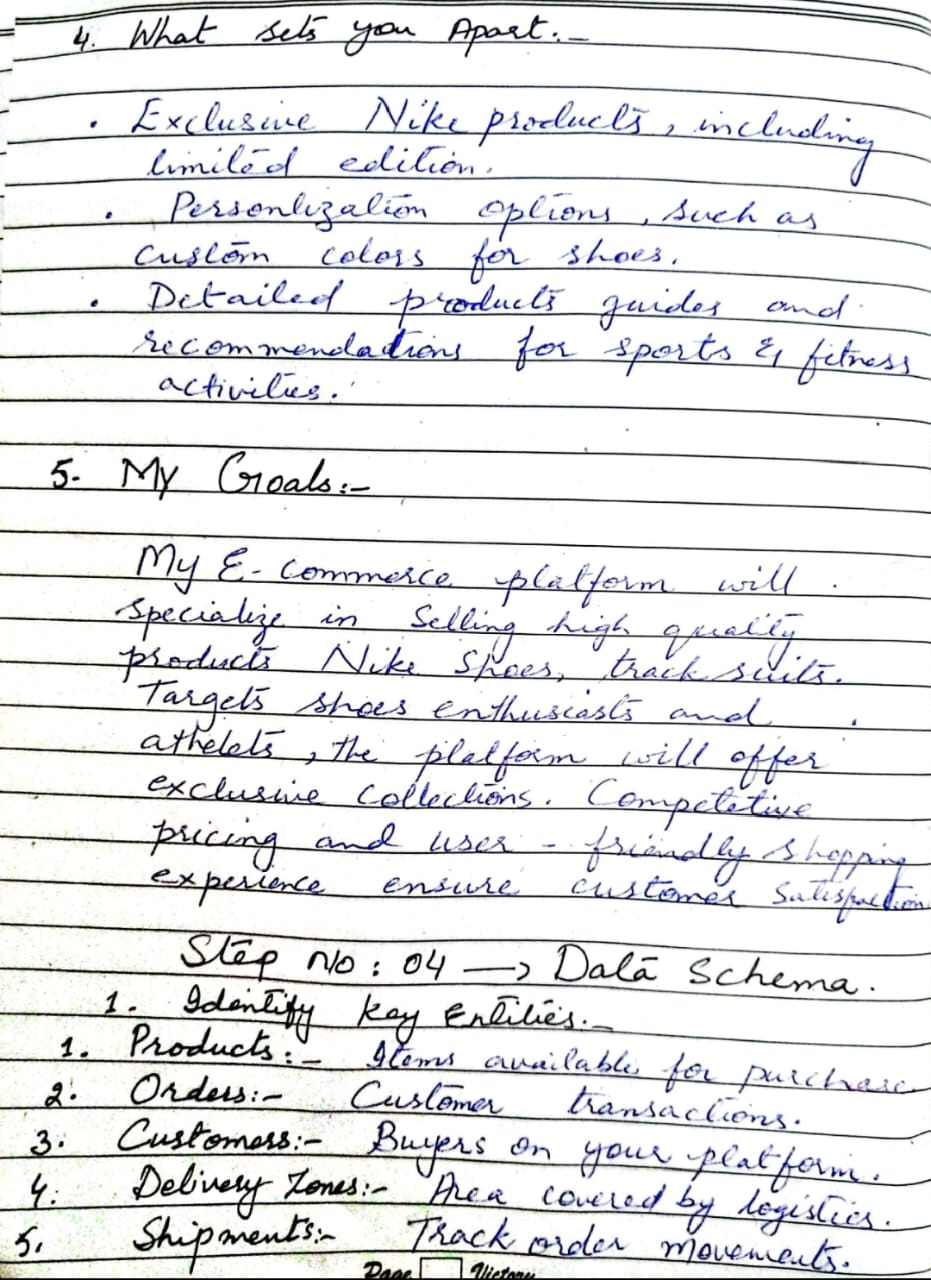 4. What sets you Apart:-
• Exclusive Nike products, including
limited edition.
• Personlization options, such as
custom colors for shoes.
• Detailed products guides and
recommendations for sports & fitness
activities.
5- My Goals:-
My E-commerce platform will
specialize in Selling high quality
products Nike Shoes, track suits.
Targets shoes enthusiasts and
athelets, the platform will offer
exclusive collections. Competetive
pricing and user-friendly shopping
experience ensure customer satisfaction
Step No: 04 → Data Schema.
1. Identify key Entities:-
1. Products:- Items available for purchase
2. Orders:- Customer transactions.
3. Customers:- Buyers on your platform.
4. Delivery Zones:- Area covered by logistics.
5. Shipments:- Track order movements.
Page Victory